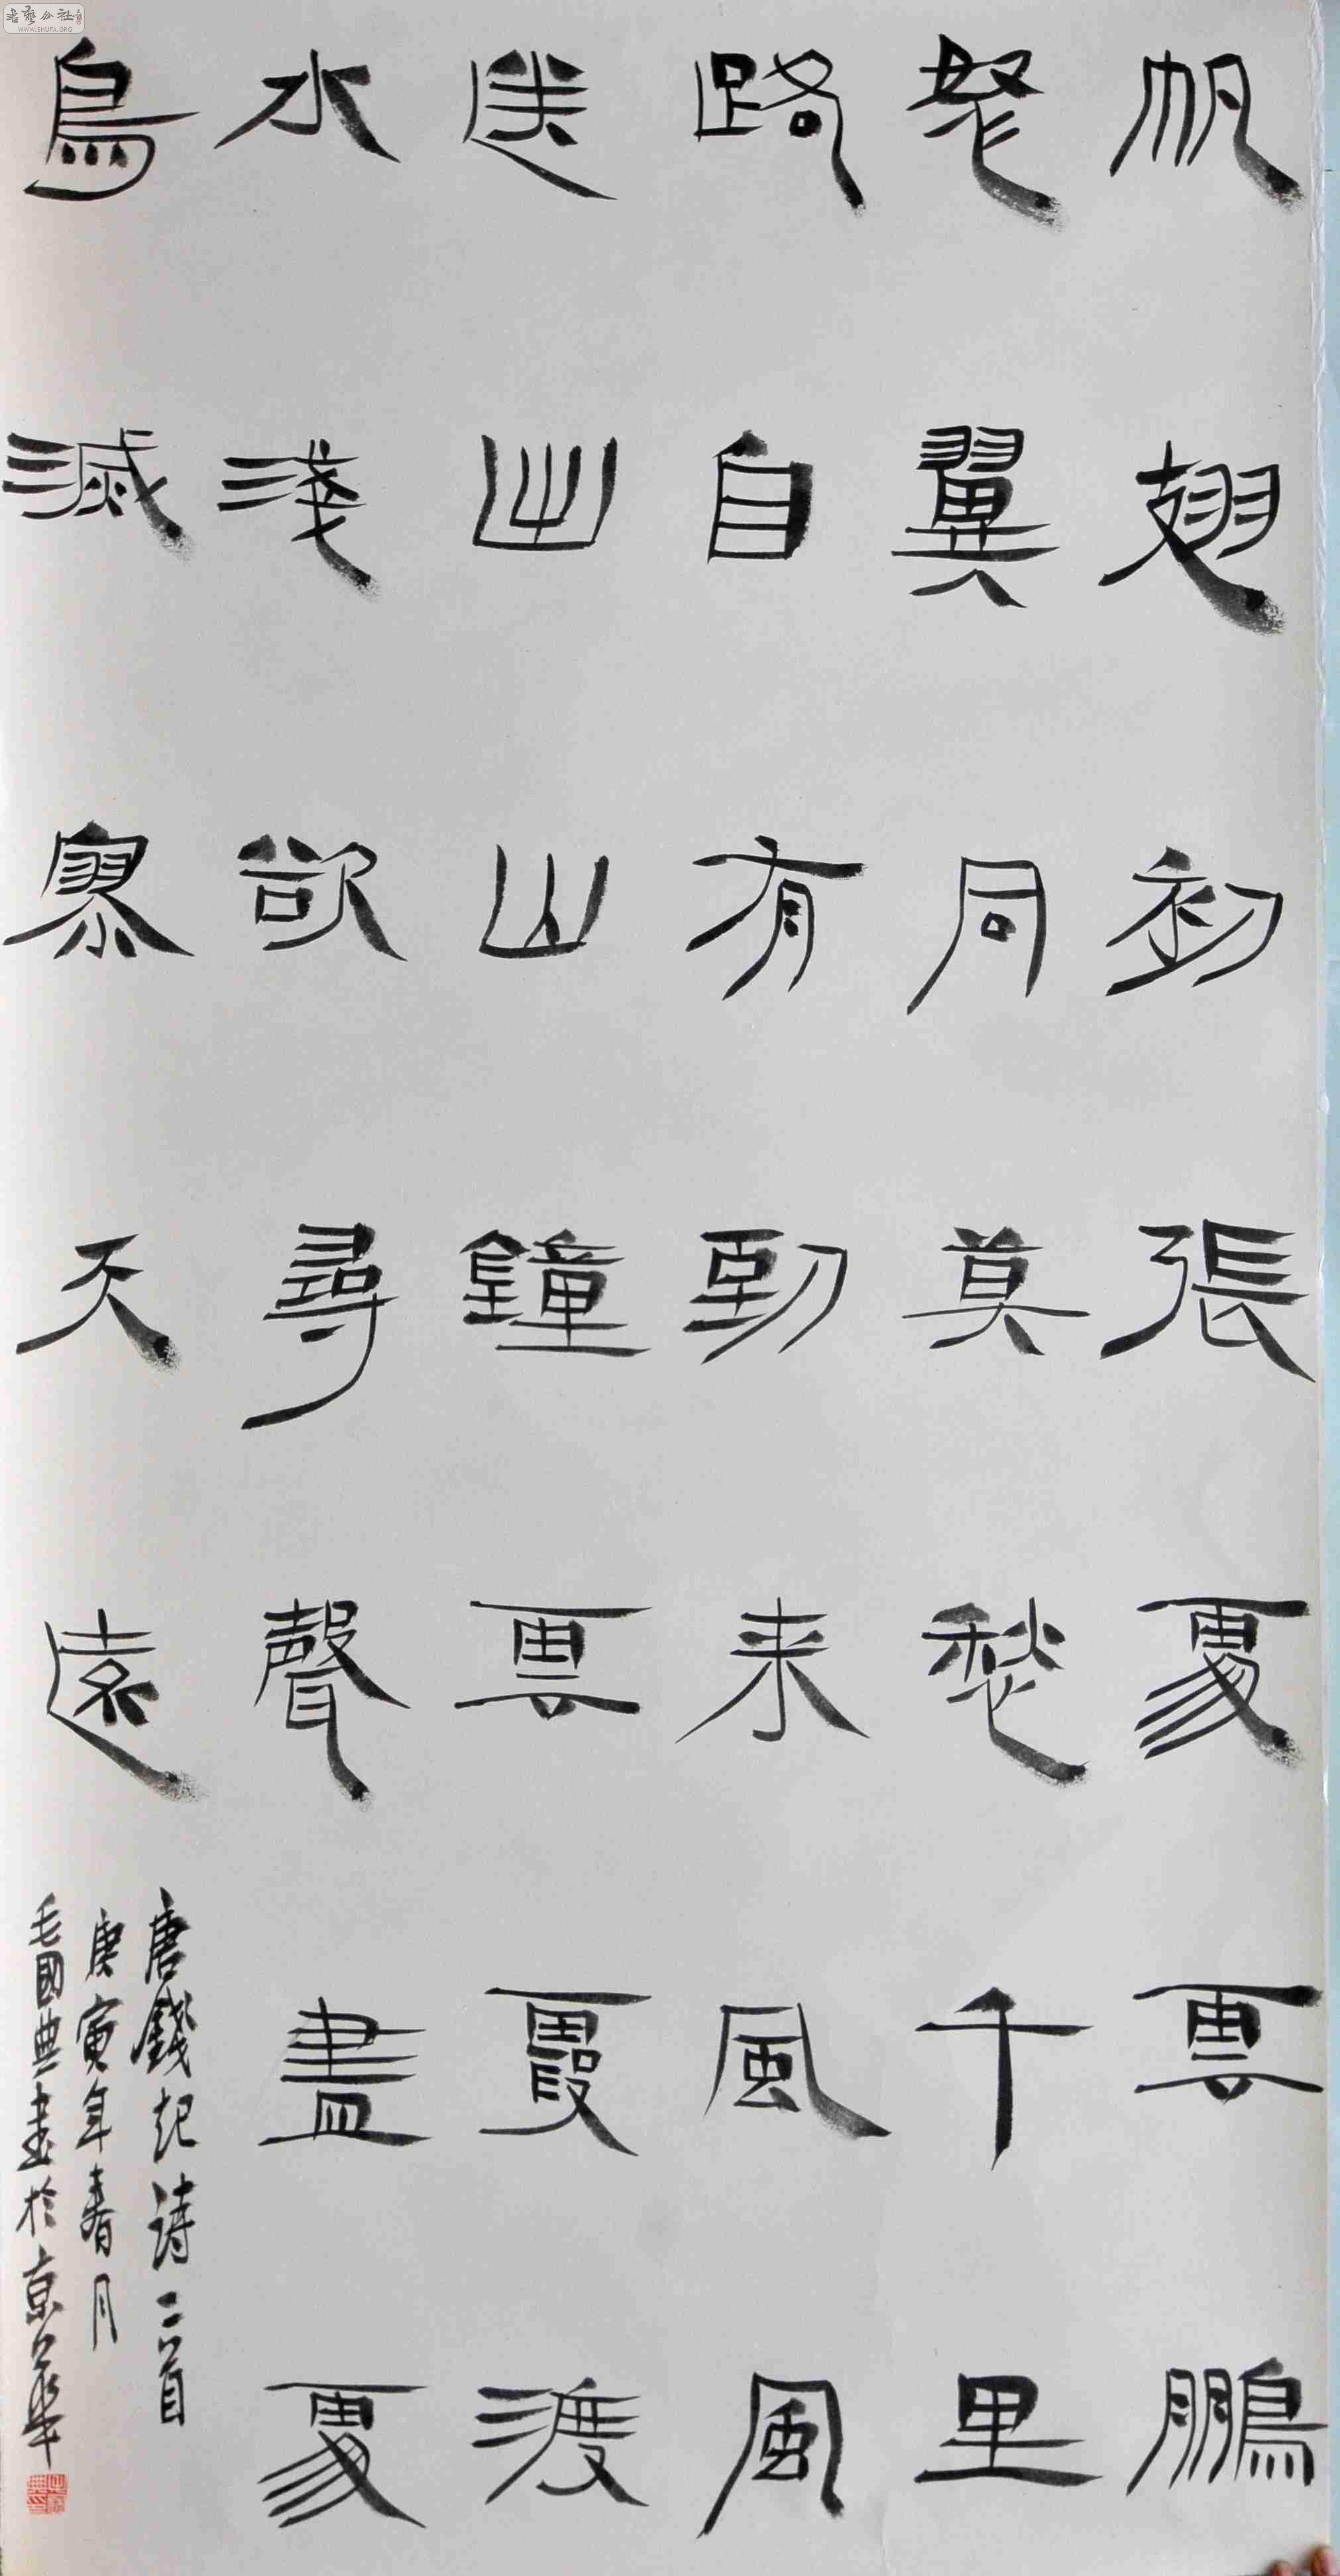 帆翅初張處雲鵬
怒翼同莫愁千里
路自有到来風風
送出山鐘雲霞渡
水淺欲尋聲盡處
鳥滅寥天遠
唐錢起詩二首
庚寅年春月
毛國典書於京華
書藝公社
WWW.SHUFA.ORG